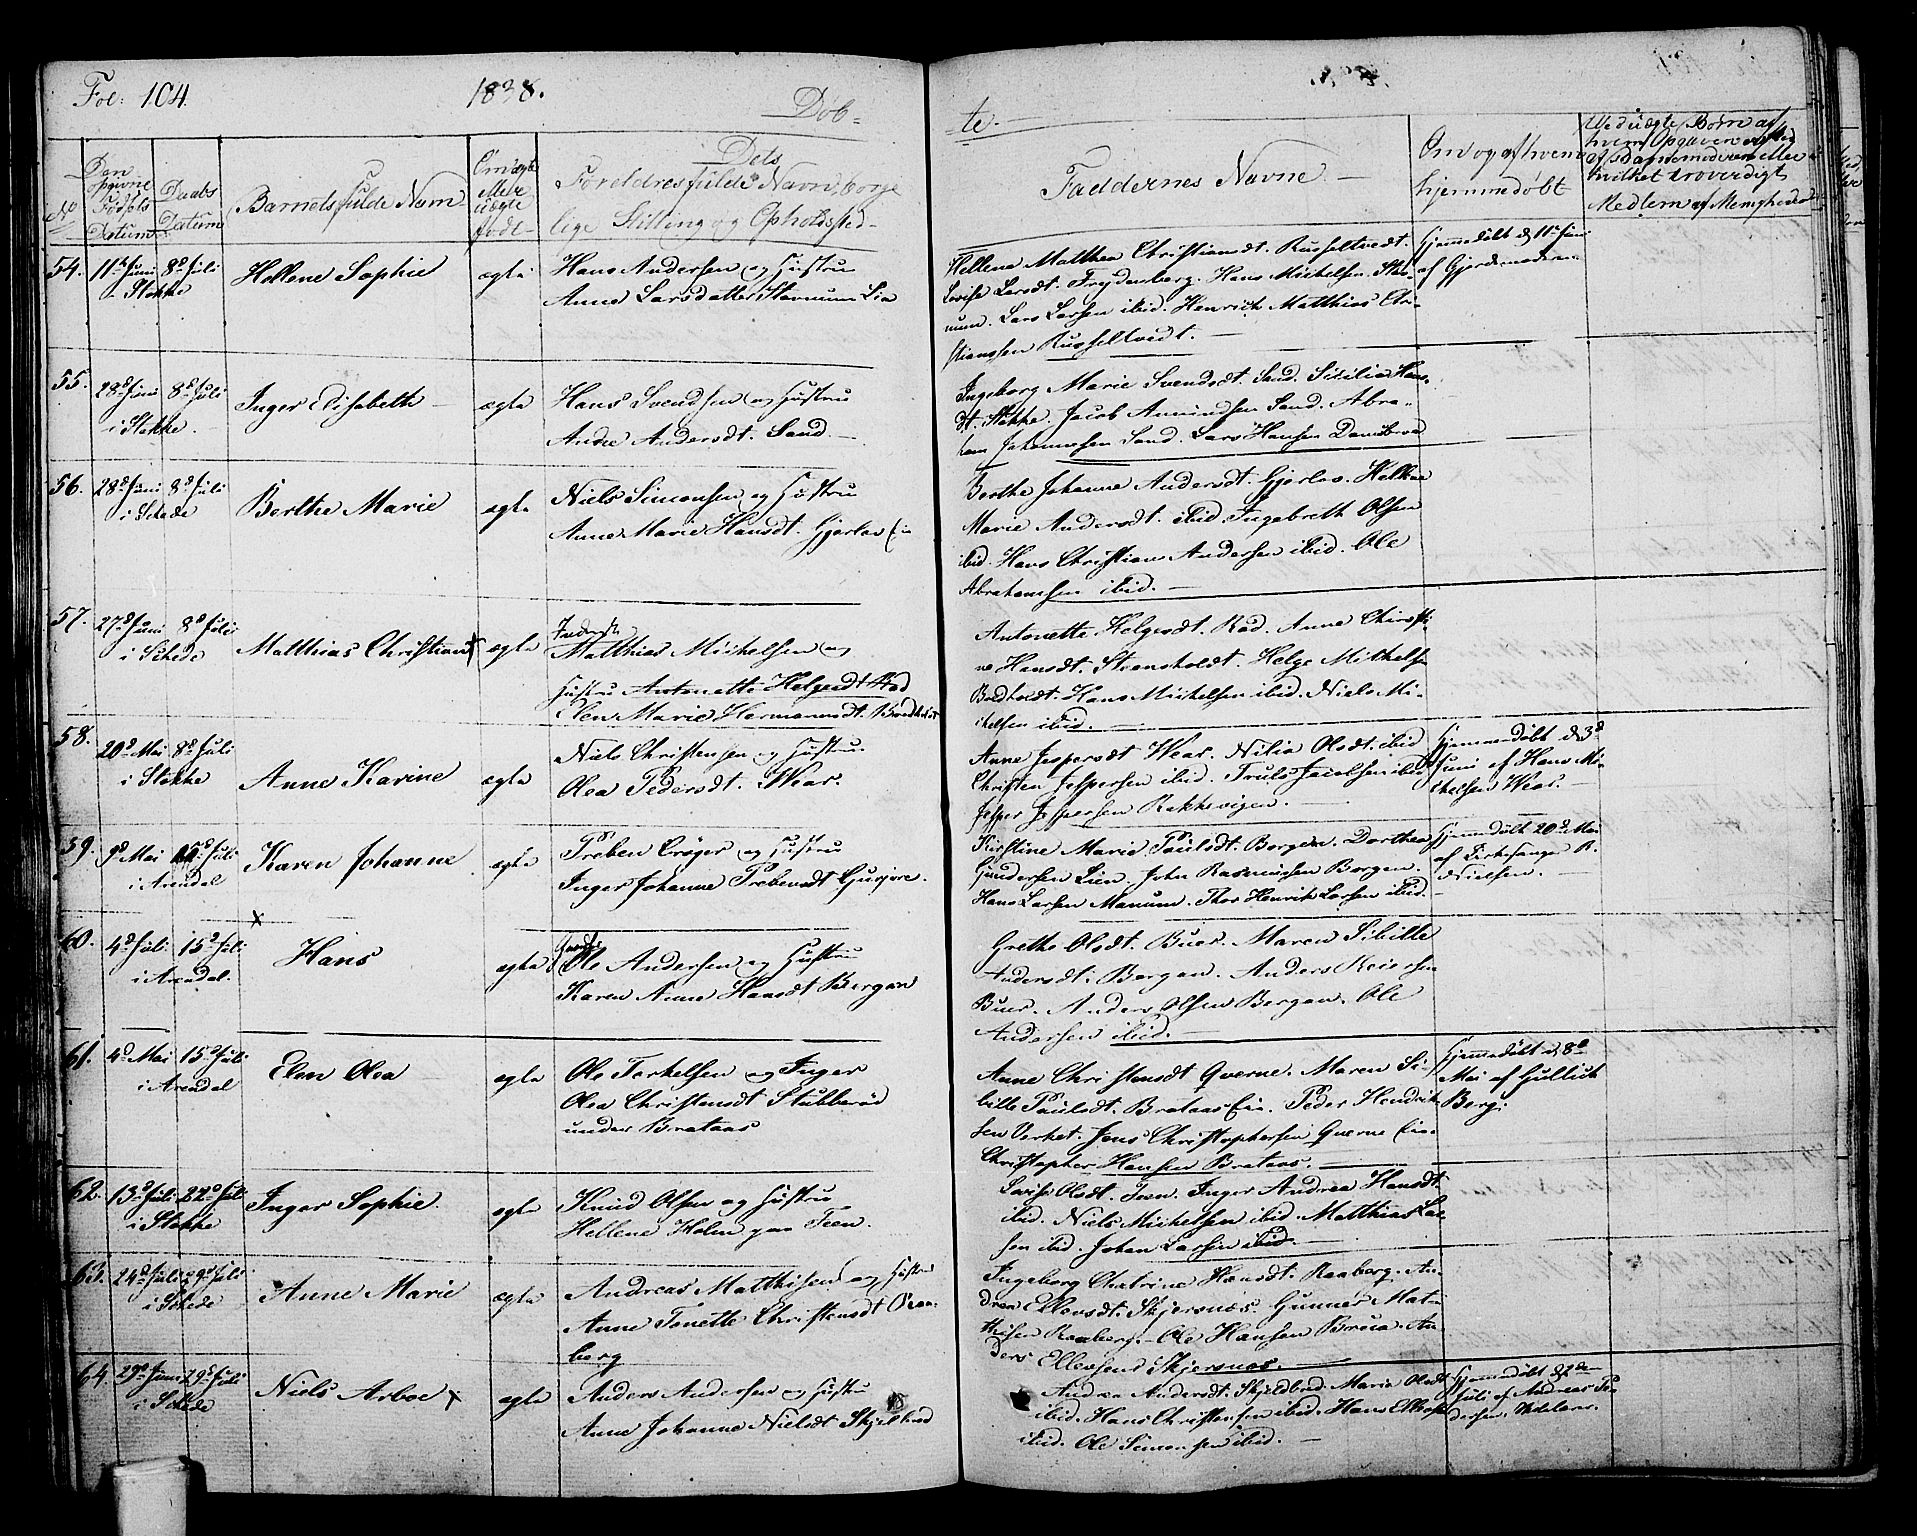 Fol: 104.
1838.
Døb-
te.
No
Den opgivne Fødsels Datum
Daabs Datum
Barnets fulde Navn
Om ægte eller uægte født
Dets Foreldres fulde Navn, borgelige Stilling og Opholdssted
Faddernes Navne
Om og af hvem hjemmedøbt
Ved uægte Børn af hvem Opgaven er sked hvilket troverdigt Medlem af Menigheden
54. 11te Juni i Stokke 8d Juli
Hellene Sophie
ægte
Hans Andersen og Hustru
Anne Larsdatter Stavnum Eie
Hellena Mathea Christiansdt. Russeltvedt.
Lovise Larsdt. Frydenberg. Hans Michelsen Stav-
num. Lars Larsen ibid. Henrich Matthias Chri-
stiansen Russeltvedt.
Hjemmedøbt d 11te Juni
af Gjordemoderen
55. 28d Juni i Stokke 8d Juli
Inger Elisabeth
ægte
Hans Svendsen og Hustru
Andrea Andersdt. Sand.
Ingeborg Marie Svendsdt. Sand. Sicilia Hans-
dt. Stokke. Jacob Amundsen Sand. Abra-
ham Johannesen Sand. Lars Hansen
56. 28d Juni i Schede 8d Juli
Berthe Marie
ægte
Niels Simonsen og Hustru
Anne Marie Hansdt. Gjerløv Eie
Berthe Johanne Andersdt. Gjerløv.
Marie Andersdt. ibid. Ingebreth Olsen
ibid. Hans Christian Andersen ibid. Ole
Abrahamsen ibid.
57. 27d Juni i Schede 8d Juli
Matthias Christian x
ægte
Matthias Michelsen og
Hustru Antonette Helgesdt Rød
Elen Marie Hermannsdt.
Antonette Helgesdt. Rød. Anne Christi-
ne Hansdt. Stensholdt. Helge Michelsen
Hans Michelsen ibid. Niels Mi-
chelsen ibid.
58. 20d Mai i Stokke 8d Juli
Anne Karine
ægte
Niels Christensen og Hustru
Olea Pedersdt. Wear.
Anne Jespersdt Wear. Nilia Olsdt. ibid
Christen Jespersen ibid. Truls Jacobsen ibid
Jesper Jespersen Rakkevigen.
Hjemmedøbt d 3d
Juni af Hans Mi-
chelsen Wear.
59. 9d Mai i Arendal 15d Juli
Karen Johanne
ægte
Preben Crøger og Hustru
Inger Johanne Prebensdt
Kirstine Marie Paulsdt. Bergen. Dorthea
Gundersen Lien. John Rasmussen Bergan.
Hans Larsen Manum. Thor Henrik Larsen ibid.
Hjemmedøbt 20d Mai
af Kirkesanger R.
Nielsen.
60. 4d Juli i Arendal. 15d Juli
x
Hans
ægte
Ole Andersen og Hustru
Karen Anne Hansdt Bergan
Grethe Olsdt. Buer. Maren Sibille
Andersdt. Bergan. Anders Reiersen
Buer. Anders Olsen Bergan. Ole
Andersen ibid.
61. 4d Mai i Arendal 15d Juli
Elen Olea
ægte
Ole Torkelsen og Inger
Olea Christensdt Stubberød
under Brataas
Anne Christensdt Qverne. Maren Si-
bille Paulsdt. Brataas Eie. Peder Hendrik-
sen Verket. Jens Christophersen Qverne Eie.
Christopher Hansen Brataas.
Hjemmedøbt d 8d
Mai af Gullick
Berg.
62. 13d Juli i Stokke 22d Juli
Inger Sophie.
ægte
Knud Olsen og Hustru
Hellene Holm paa Teen.
Lovise Olsdt. Teen. Inger Andrea Hansdt.
ibid. Niels Michelsen ibid. Matthias Lar-
sen ibid. Johan Larsen ibid.
63. 24d Juli i Schede 29d Juli
Anne Marie
ægte
Andreas Matthisen og Hustru
Anne Tonette Christensdt Raa-
berg
Ingeborg Chatrine Hansdt. Raaberg. An-
drea Ellevsdt. Skjersnæs. Gunner Mat-
thisen Raaberg. Ole Hansen An-
ders Ellevsens Skjersnæs.
64. 29d Juni i Schede 29d Juli
Niels Arboe x
ægte
Anders Andersen og Hustru
Anne Johanne Nielsdt Skjelbred
Andrea Andersdt. Skjelbred. Maria Olsdt
ibid. Hans Christensen ibid. Hans
ibid. Ole Simonsen ibid.
Hjemmedøbt d 1de
Juli af Andreas Pe-
dersen